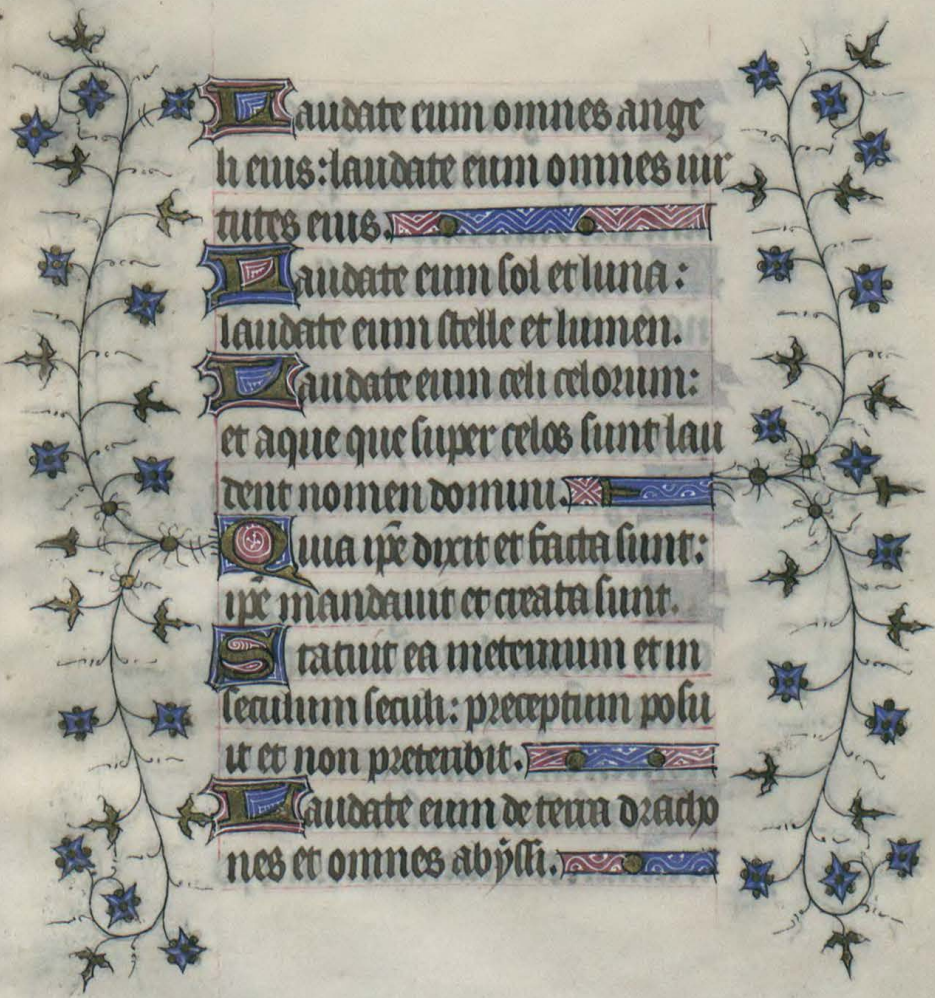 Laudate eum omnes ange
li eius: laudate eum omnes uir
tutes eius.
Laudate eum sol et luna:
laudate eum stelle et lumen.
Laudate eum celi celorum:
et aque que super celos sunt lau
dent nomen domini.
Quia ip̄e dixit et facta sunt:
ip̄e mandauit et creata sunt.
Statuit ea ineternum et in
seculum seculi: preceptum posu
it et non preteribit.
Laudate eum de terra dracho
nes et omnes abyssi.